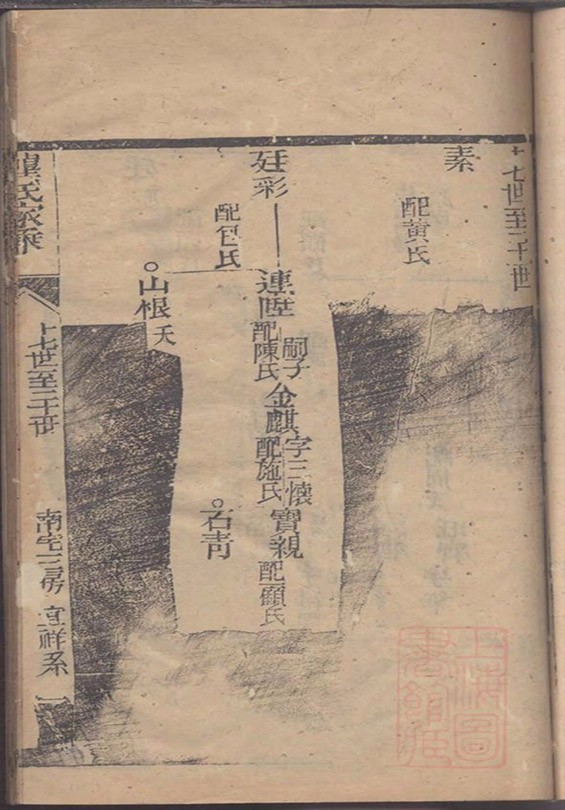 十七世至二十世
素
配黃氏
廷彩
配包氏
連陞
嗣子
配陳氏
金麒
字三懷
配施氏
寶親
配顧氏
石青
山根
夭
氏家乘
十七世至二十世
南宅三房
宜祥系
上海圖
書館藏